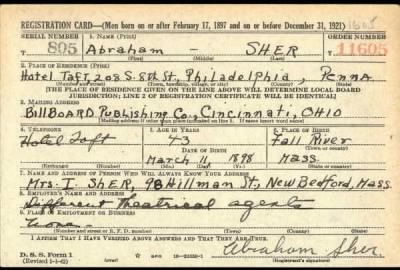 REGISTRATION CARD—(Men born on or after February 17, 1897 and on or before December 31, 1921)
SERIAL NUMBER 1. NAME (Print) ORDER NUMBER
805 Abraham - SHER 11605
(First) (Middle) (Last)
2. PLACE OF RESIDENCE (Print)
Hotel Taft, 208 S. 8th St, Philadelphia, Penna.
(Number and street) (Town, township, village, or city) (County) (State)
[THE PLACE OF RESIDENCE GIVEN ON THE LINE ABOVE WILL DETERMINE LOCAL BOARD
JURISDICTION; LINE 2 OF REGISTRATION CERTIFICATE WILL BE IDENTICAL]
3. MAILING ADDRESS
BillBOARD Publishing Co., Cincinnati, OHIO
[Mailing address if other than place indicated on line 2. If same insert word same]
4. TELEPHONE 5. AGE IN YEARS 6. PLACE OF BIRTH
Hotel Taft 43 Fall River
DATE OF BIRTH (Town or county)
March 11 1898 Mass.
(Exchange) (Number) (Mo.) (Day) (Yr.) (State or country)
7. NAME AND ADDRESS OF PERSON WHO WILL ALWAYS KNOW YOUR ADDRESS
Mrs. I. SHER, 98 Hillman St, New Bedford, Mass.
8. EMPLOYER'S NAME AND ADDRESS
Different theatrical agents
9. PLACE OF EMPLOYMENT OR BUSINESS
None
(Number and street or R. F. D. number) (Town) (County) (State)
I AFFIRM THAT I HAVE VERIFIED ABOVE ANSWERS AND THAT THEY ARE TRUE.
D. S. S. Form 1
(Revised 1-1-42) (over)
Abraham Sher
(Registrant's signature)